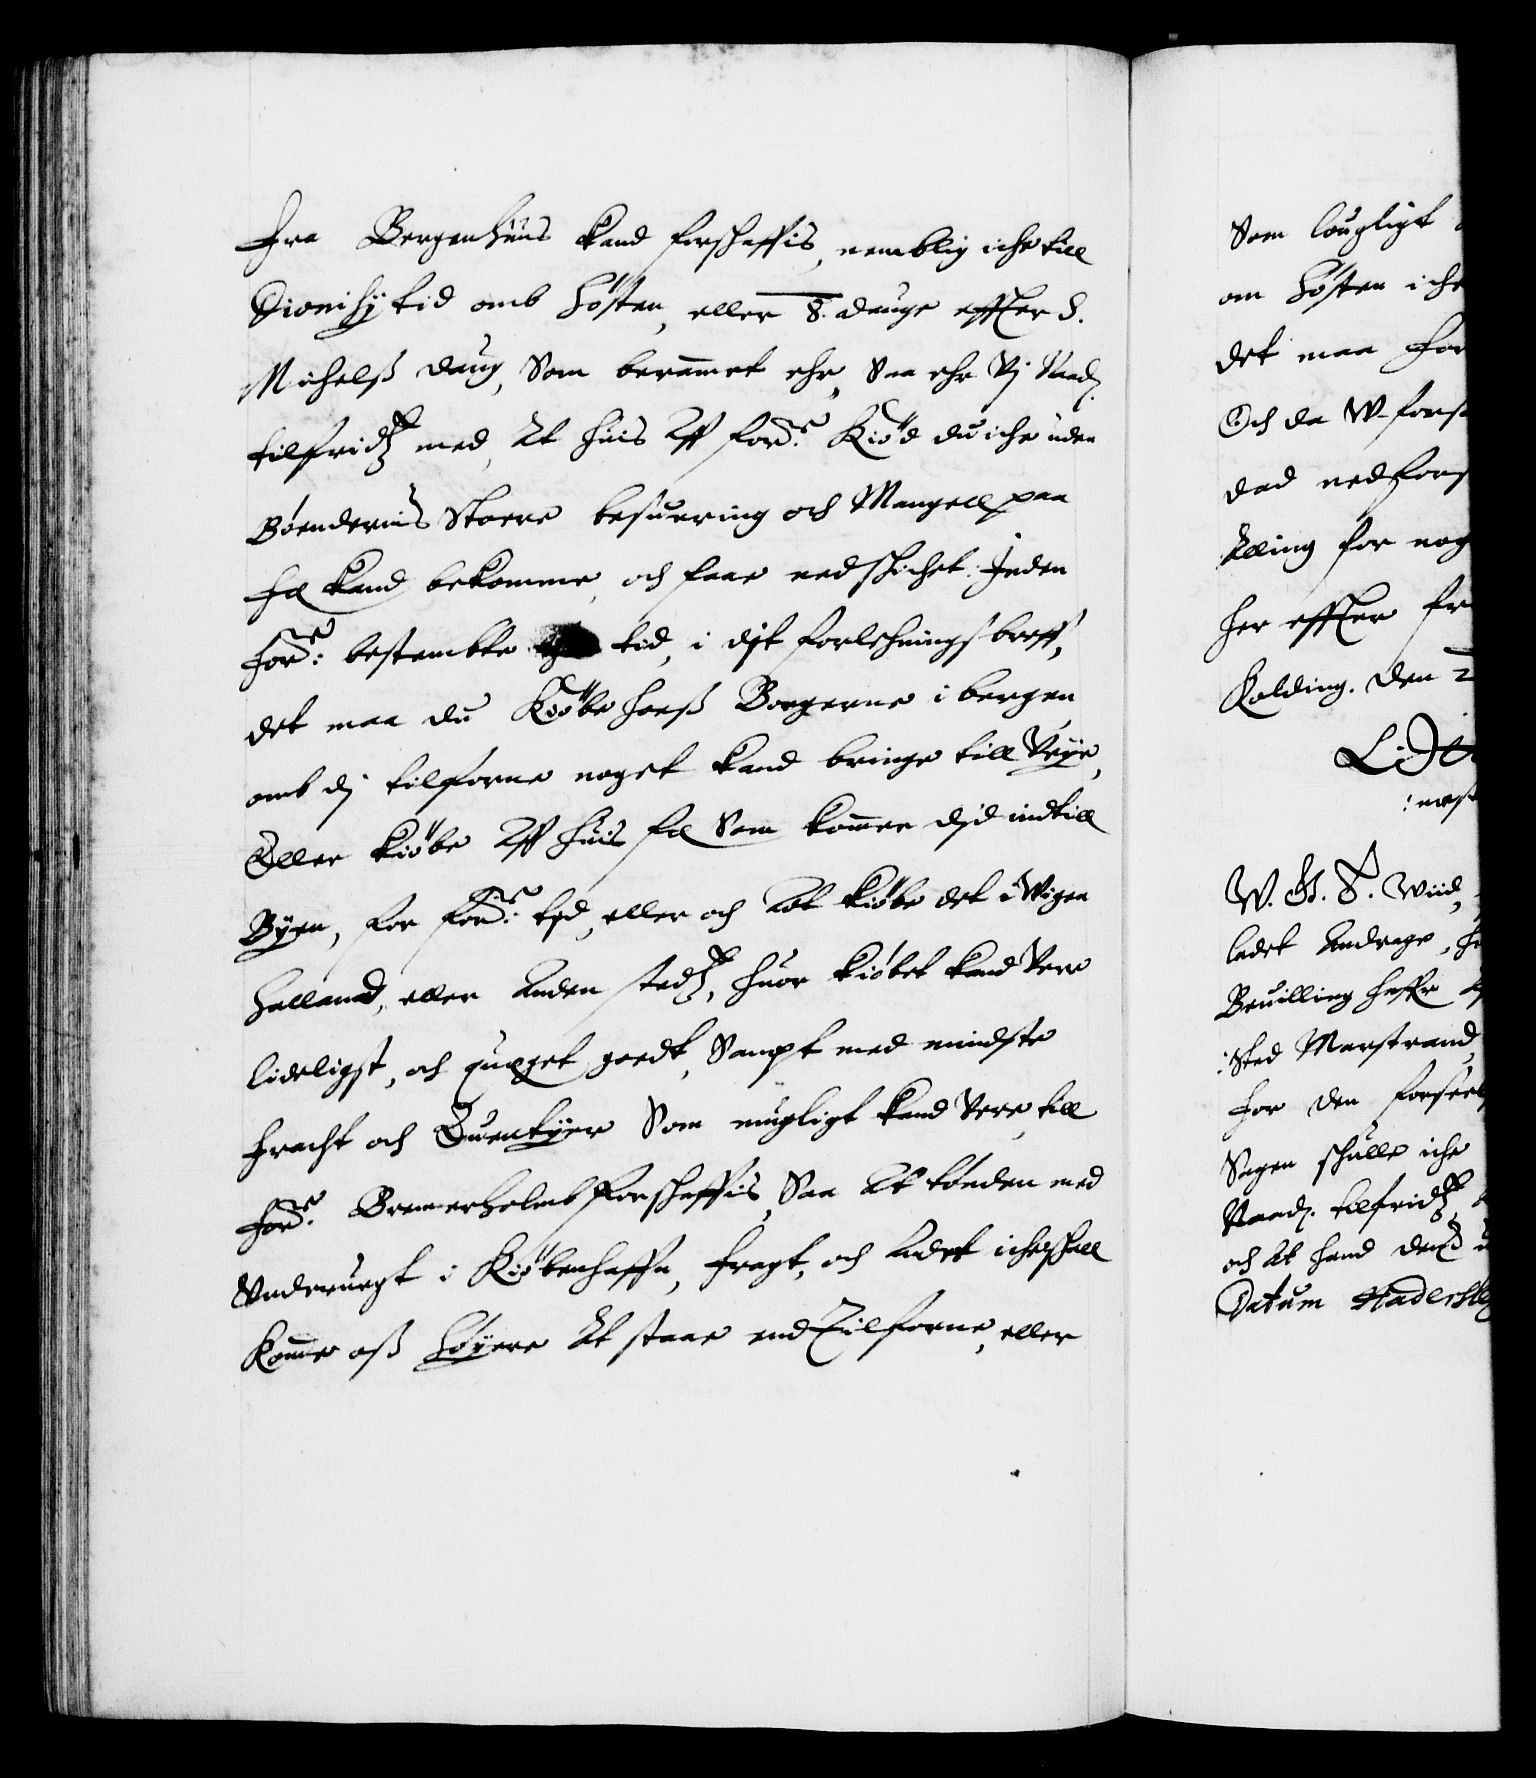 fra Bergenhuus kand forschaffis, nemblig iche till
Dionisij tid omb høsten, eller 8. dauge effter S.
Michelß daug, Som berammet ehr, Saa ehr Vj Naad.
tilfridtz med, At huis Aff forne: Kiød du iche uden
Bøndernis Store besuering och Mangell paa
fæ kand bekomme, och faae nedschichet. Inden
forne: bestembte tid, i dit forlehningsbreff,
det maa du Kiøbe hoeß Borgerne i bergen
omb dj tilforne noget kand bringe till Veye,
Eller kiøbe Aff huis fæ Som kommer did indtill
Byen, for forne: tid, eller och lat kiøbe det i Wigen
halland, eller Anden stedtz, huor kiøbet kand Vere
lideligst, och godt, Sampt med mindste
fracht och Som mugligt kand Vere, till
forne: Bremerholmb forschaffis, Saa At tønden med
Vnderuegt i Kiøbenhaffn, fragt, och Andet iche schall
Komme oß høyere At staae end Tilforne, eller
Som lougligt
om høsten iche
det maa for
Och da W-fors
dad nedfors
Alling for nog
her effter fr
Kolding. den 2
W. G. T. Wiid,
ladet Andrage, h
Beuilling haffr
Sted Marstrand,
for den forseel
Sagen schulle iche
Naad. tilfridtz
och At hand
Datum Haderslef